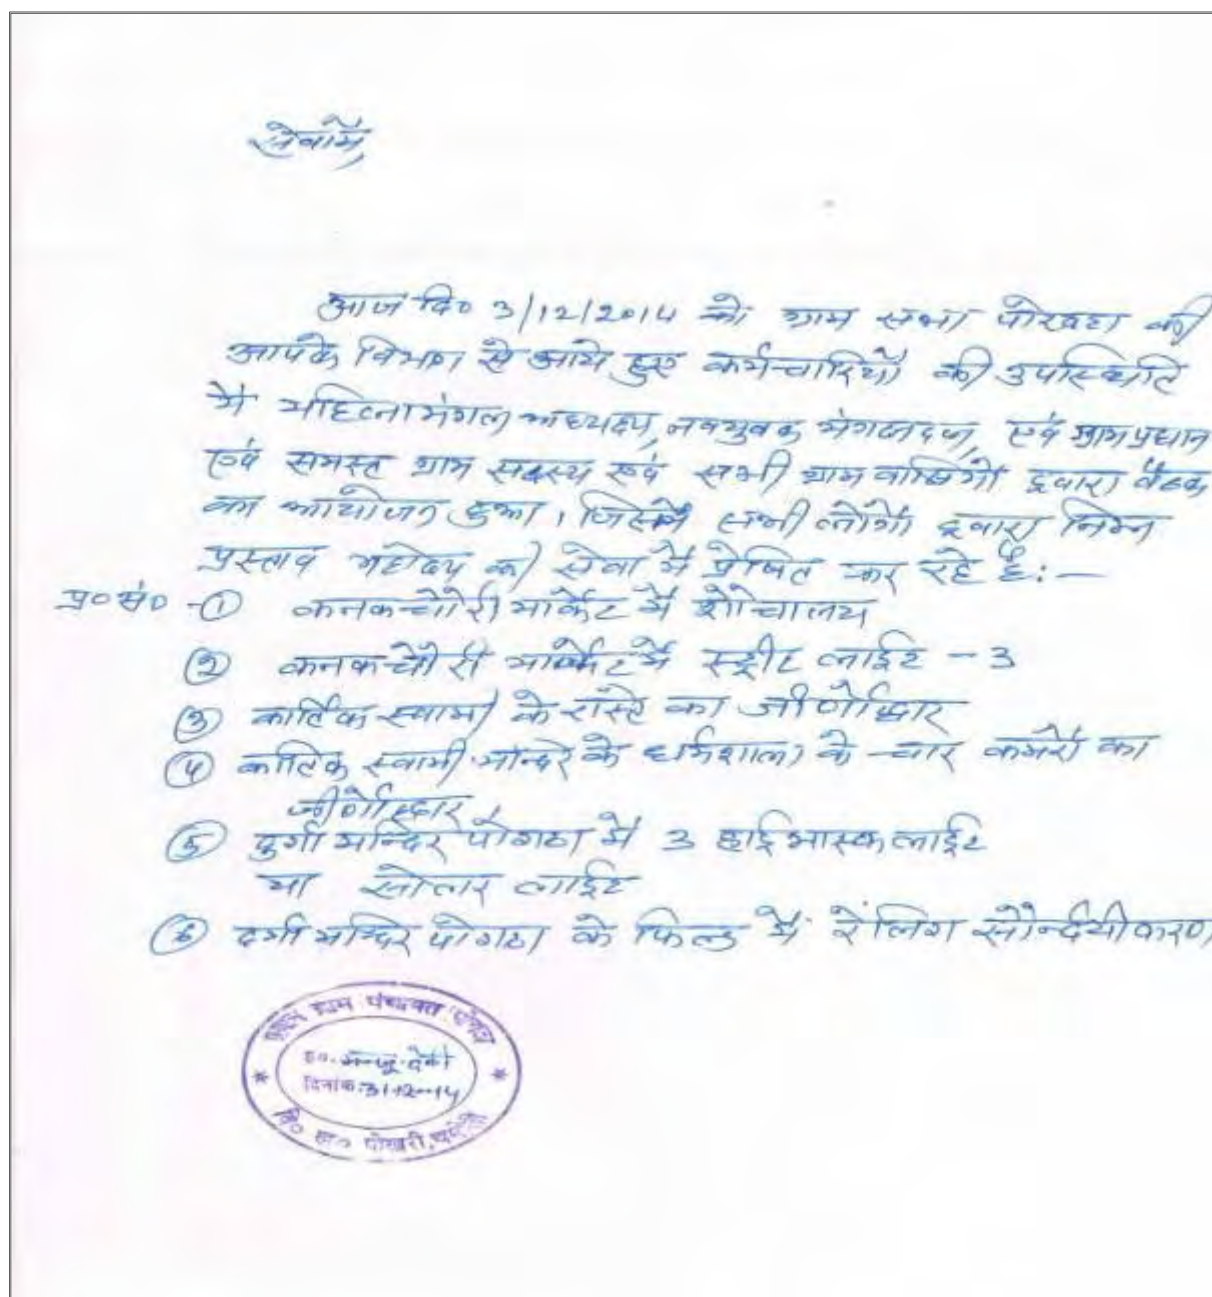 सेवामें,
आज दि० 3/12/2014 को ग्राम सभा पोखठा की
आपके विभाग से आये हुए कर्मचारियों की उपस्थिति
में महिलामंगल अध्यक्ष, नवयुवक मंगलदल, एवं ग्राम प्रधान
एवं समस्त ग्राम सदस्य एवं सभी ग्राम वासियों द्वारा बैठक
का आयोजन हुआ, जिसमें सभी लोगों द्वारा निम्न
प्रस्ताव महोदय की सेवा में प्रेषित कर रहे हैं:—
प्र० सं० - ① कनकचौरी मार्केट में शौचालय
② कनकचौरी मार्केट में स्ट्रीट लाईट - 3
③ कार्तिक स्वामी के रास्ते का जीर्णोद्धार
④ कार्तिक स्वामी मन्दिर के धर्मशाला के चार कमरों का
जीर्णोद्धार
⑤ दुर्गा मन्दिर पोगठा में 3 हाई मास्क लाईट
या सोलार लाईट
⑥ दुर्गा मन्दिर पोगठा के फिल्ड में रेलिंग सौन्दर्यीकरण
ग्राम पंचायत पोगठा
ह०. मन्जू देवी
दिनांक: 3-12-14
वि० ख० पोखरी, चमोली